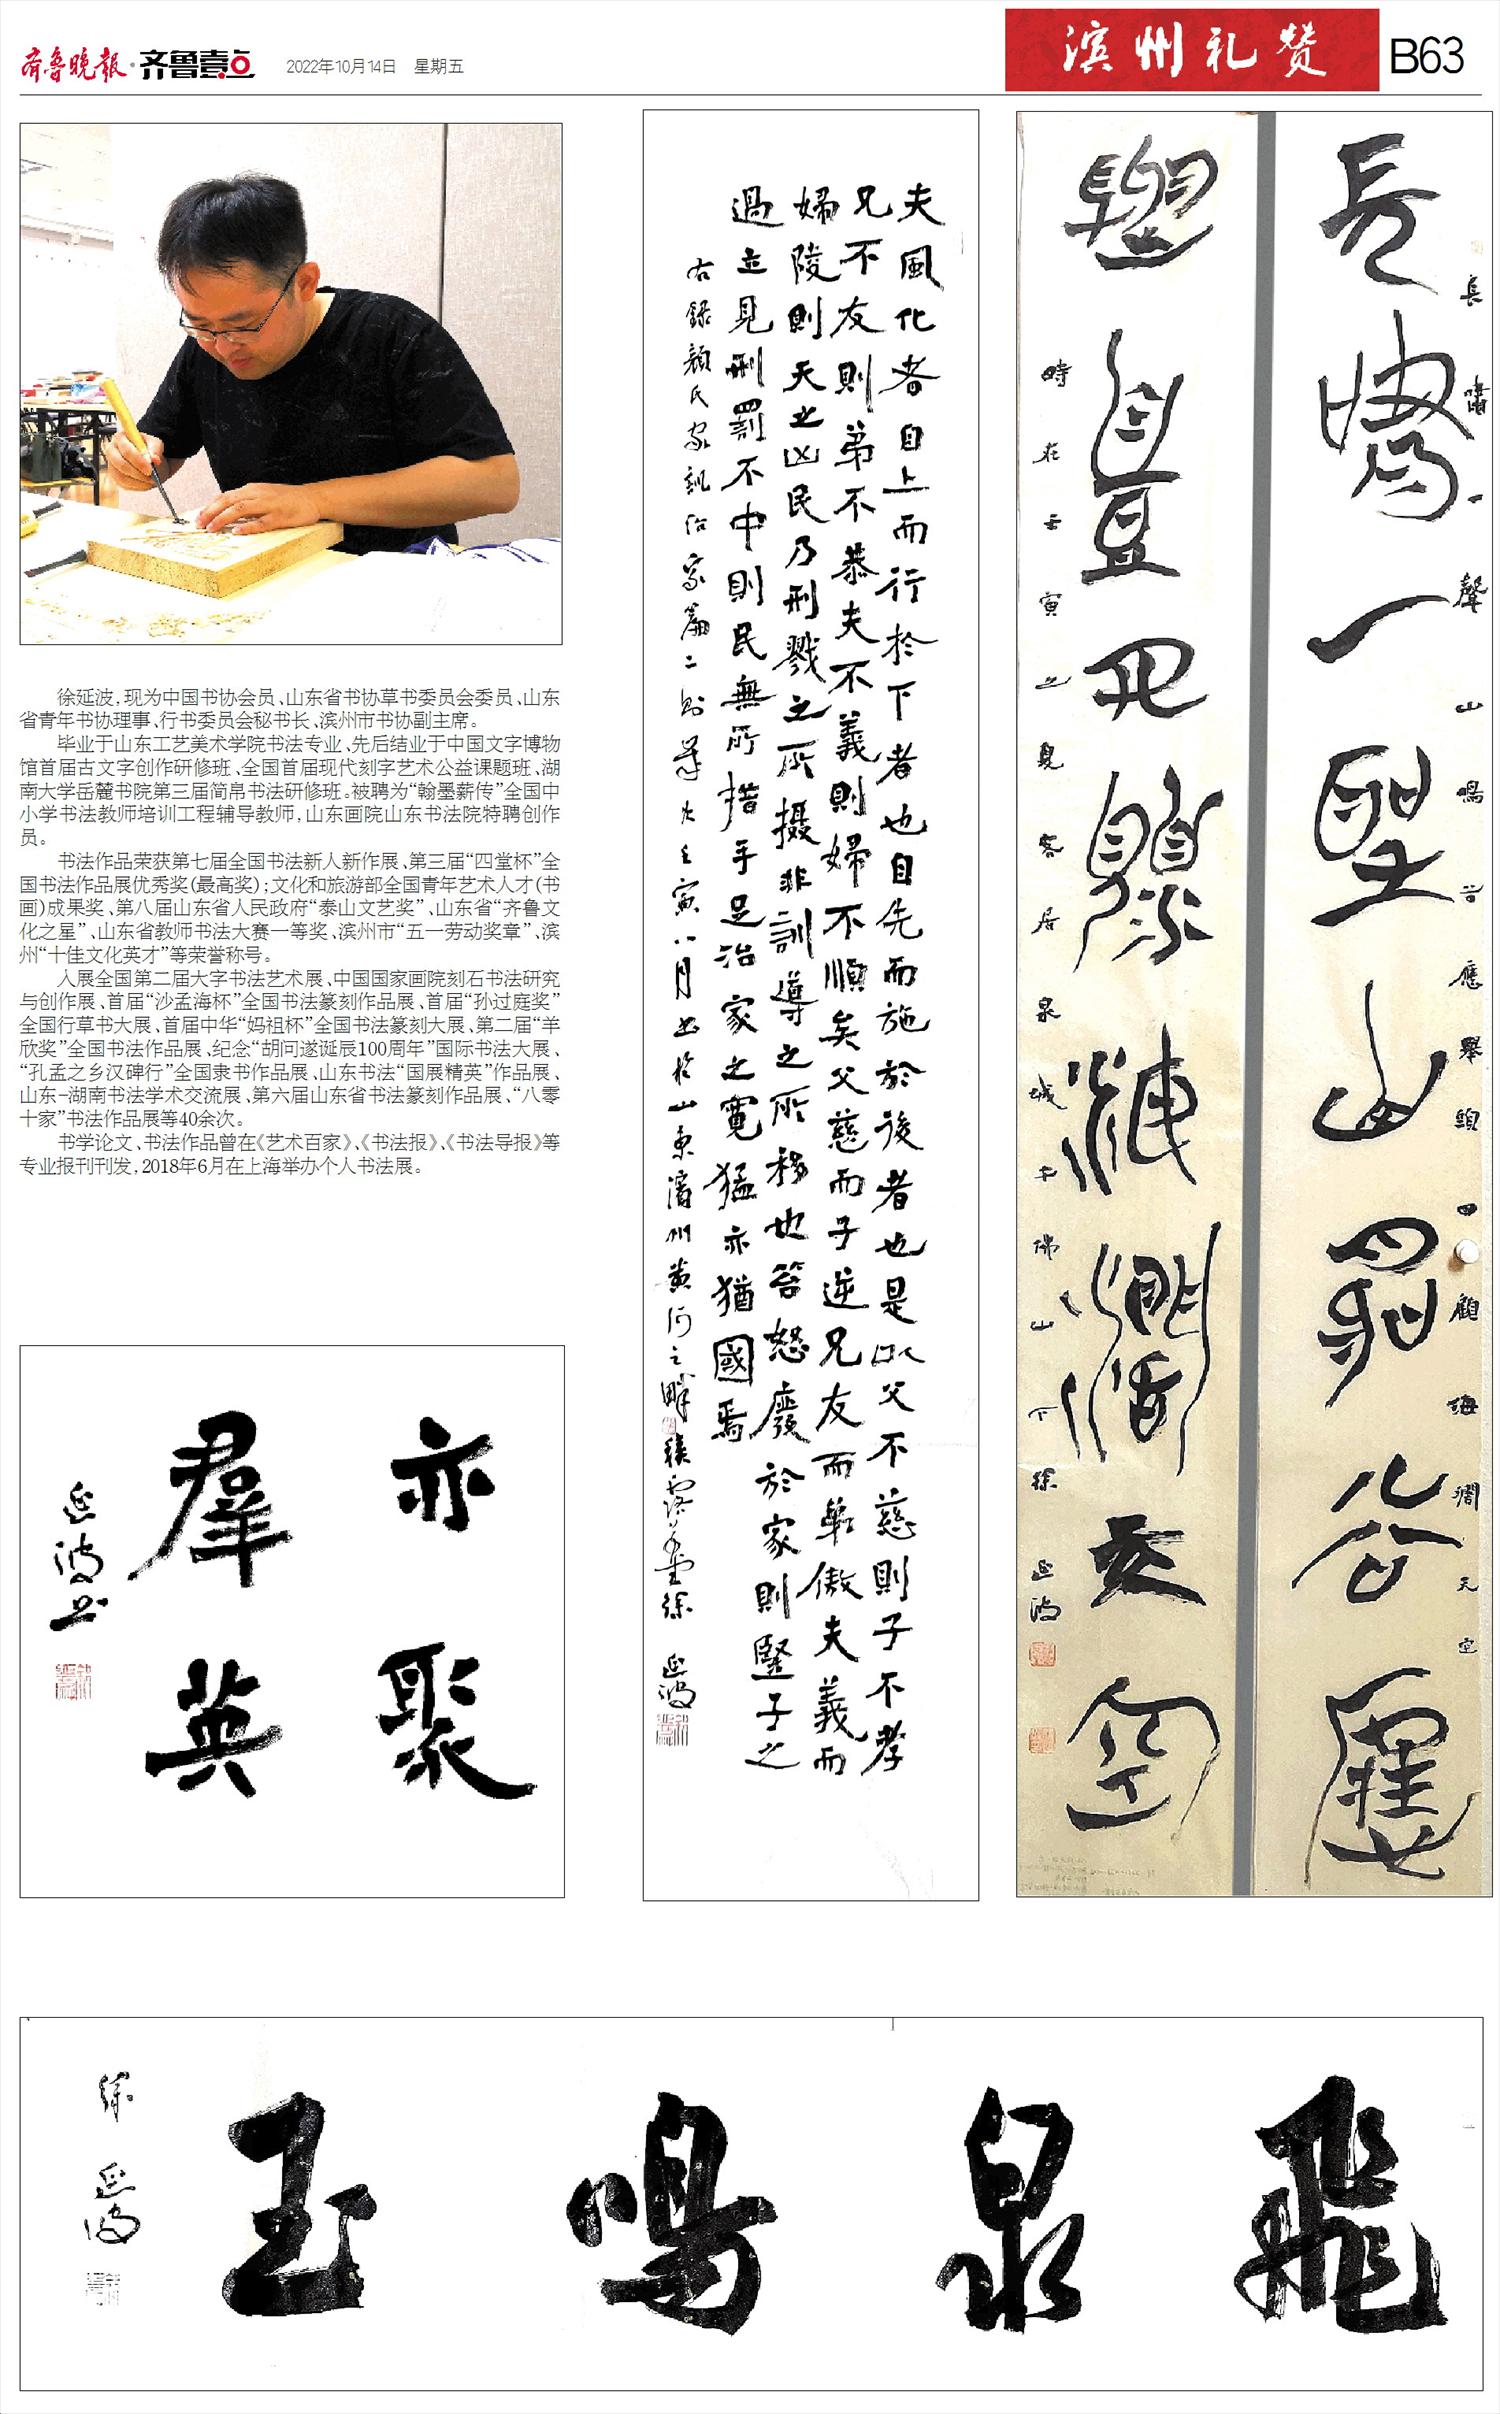 齐鲁晚报·齐鲁壹点
2022年10月14日 星期五
滨州礼赞
B63
徐延波,现为中国书协会员、山东省书协草书委员会委员、山东
省青年书协理事、行书委员会秘书长、滨州市书协副主席。
毕业于山东工艺美术学院书法专业、先后结业于中国文字博物
馆首届古文字创作研修班、全国首届现代刻字艺术公益课题班、湖
南大学岳麓书院第三届简帛书法研修班。被聘为“翰墨薪传”全国中
小学书法教师培训工程辅导教师,山东画院山东书法院特聘创作
员。
书法作品荣获第七届全国书法新人新作展、第三届“四堂杯”全
国书法作品展优秀奖(最高奖);文化和旅游部全国青年艺术人才(书
画)成果奖、第八届山东省人民政府“泰山文艺奖”、山东省“齐鲁文
化之星”、山东省教师书法大赛一等奖、滨州市“五一劳动奖章”、滨
州“十佳文化英才”等荣誉称号。
入展全国第二届大字书法艺术展、中国国家画院刻石书法研究
与创作展、首届“沙孟海杯”全国书法篆刻作品展、首届“孙过庭奖”
全国行草书大展、首届中华“妈祖杯”全国书法篆刻大展、第二届“羊
欣奖”全国书法作品展、纪念“胡问遂诞辰100周年”国际书法大展、
“孔孟之乡汉碑行”全国隶书作品展、山东书法“国展精英”作品展、
山东-湖南书法学术交流展、第六届山东省书法篆刻作品展、“八零
十家”书法作品展等40余次。
书学论文、书法作品曾在《艺术百家》、《书法报》、《书法导报》等
专业报刊刊发,2018年6月在上海举办个人书法展。
夫風化者自上而行於下者也自先而施於後者也是以父不慈則子不孝
兄不友則弟不恭夫不義則婦不順矣父慈而子逆兄友而弟傲夫義而
婦陵則天之凶民乃刑戮之所攝非訓導之所移也笞怒廢於家則豎子之
過立見刑罰不中則民無所措手足治家之寬猛亦猶國焉
右錄顏氏家訓治家篇二則歲次壬寅八月書於山東濱州黃河之畔 徐延波
長嘯一聲山鳴谷應
舉頭四顧海闊天空
長嘯一聲山鳴谷應舉頭四顧海闊天空
時在壬寅之夏客居泉城千佛山下徐延波
亦聚
羣英
延波书
飛泉鳴玉
徐延波